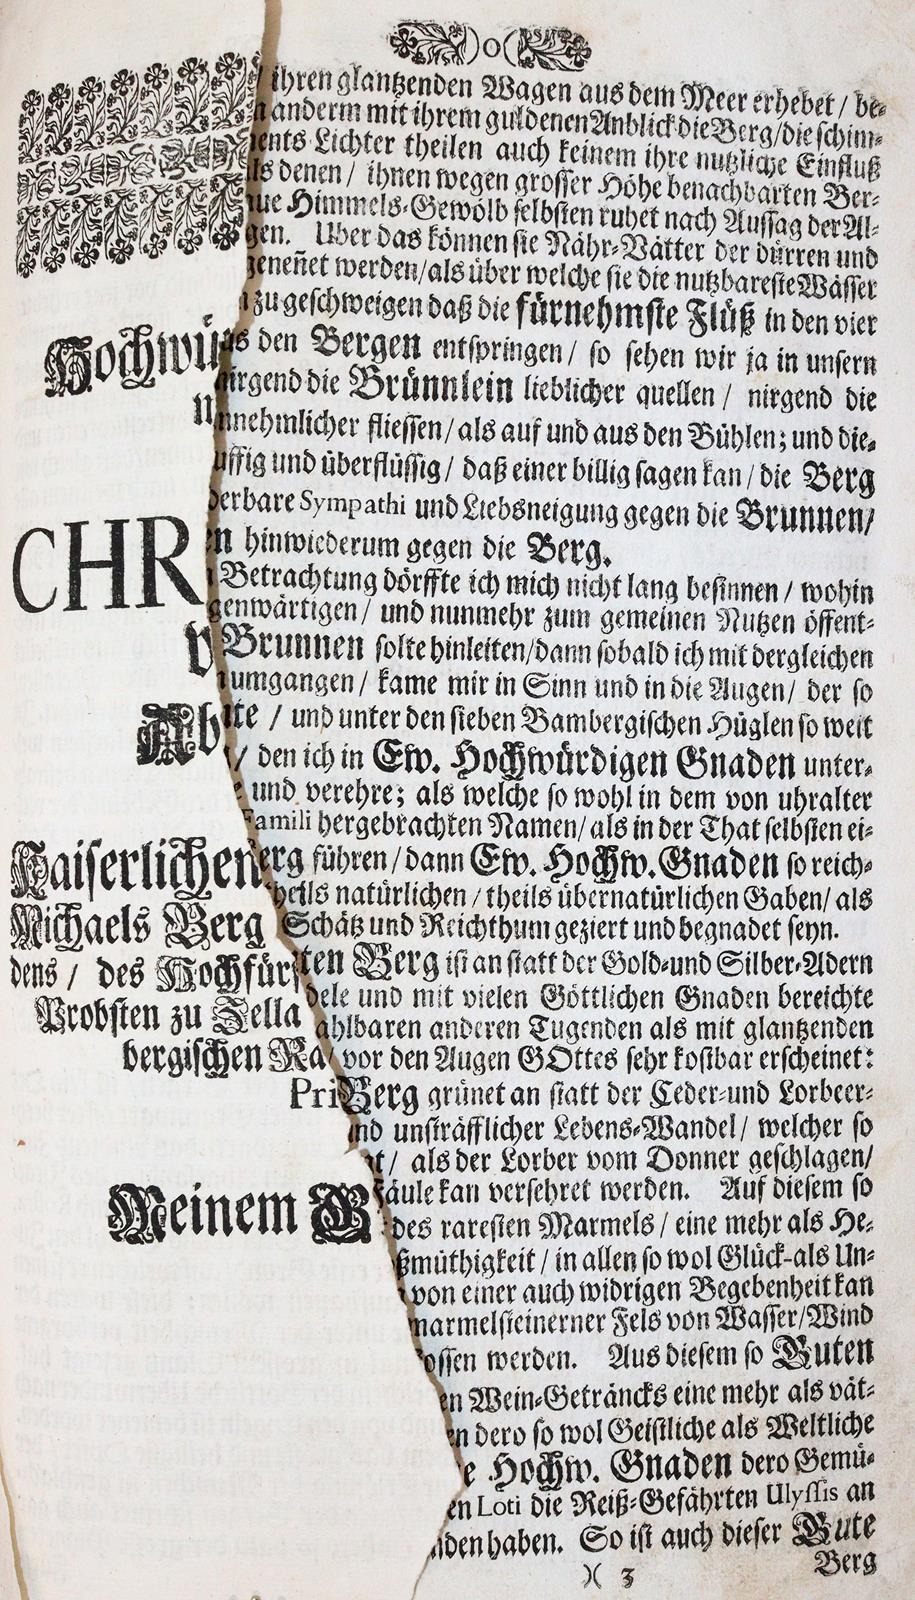 )o(
ihren glantzenden Wagen aus dem Meer erhebet / be-
anderm mit ihrem guldenen Anblick die Berg / die schim-
ents-Lichter theilen auch keinem ihre nutzliche Einfluß
ls denen / ihnen wegen grosser Höhe benachbarten Ber-
ue Himmels-Gewölb selbsten ruhet nach Aussag der Al-
gen. Uber das können sie Nähr-Vätter der dürren und
genen̄et werden / als über welche sie die nutzbareste Wässer
zu geschweigen daß die fürnehmste Flüß in den vier
Hochwü
s den Bergen entspringen / so sehen wir ja in unsern
nirgend die Brünnlein lieblicher quellen / nirgend die
nnehmlicher fliessen / als auf und aus den Bühlen; und die-
uffig und überflüssig / daß einer billig sagen kan / die Berg
derbare Sympathi und Liebsneigung gegen die Brunnen /
CHR
en hinwiederum gegen die Berg.
Betrachtung dörffte ich mich nicht lang besinnen / wohin
genwärtigen / und nunmehr zum gemeinen Nutzen öffent-
Brunnen solte hinleiten / dann sobald ich mit dergleichen
umgangen / kame mir in Sinn und in die Augen / der so
Ab
te / und unter den sieben Bambergischen Hüglen so weit
/ den ich in Ew. Hochwürdigen Gnaden unter-
und verehre; als welche so wohl in dem von uhralter
Famili hergebrachten Namen / als in der That selbsten ei-
Kaiserlichen
erg führen / dann Ew. Hochw. Gnaden so reich-
heils natürlichen / theils übernatürlichen Gaben / als
Michaels Berg
Schätz und Reichthum geziert und begnadet seyn.
dens / des Hochfür
ten Berg ist an statt der Gold-und Silber-Adern
dele und mit vielen Göttlichen Gnaden bereichte
Probsten zu Zella
ahlbaren anderen Tugenden als mit glantzenden
bergischen Ra
vor den Augen GOttes sehr kostbar erscheinet:
Pri
Berg grünet an statt der Ceder-und Lorbeer-
nd unsträfflicher Lebens-Wandel / welcher so
t / als der Lorber vom Donner geschlagen /
säule kan versehret werden. Auf diesem so
Meinem G
des raresten Marmels / eine mehr als He-
ßmüthigkeit / in allen so wol Glück-als Un-
von einer auch widrigen Begebenheit kan
marmelsteinerner Fels von Wasser / Wind
ossen werden. Aus diesem so Guten
en Wein-Geträncks eine mehr als vät-
n dero so wol Geistliche als Weltliche
e Hochw. Gnaden dero Gemü-
en Loti die Reiß-Gefährten Ulyssis an
nden haben. So ist auch dieser Gute
)( 3
Berg